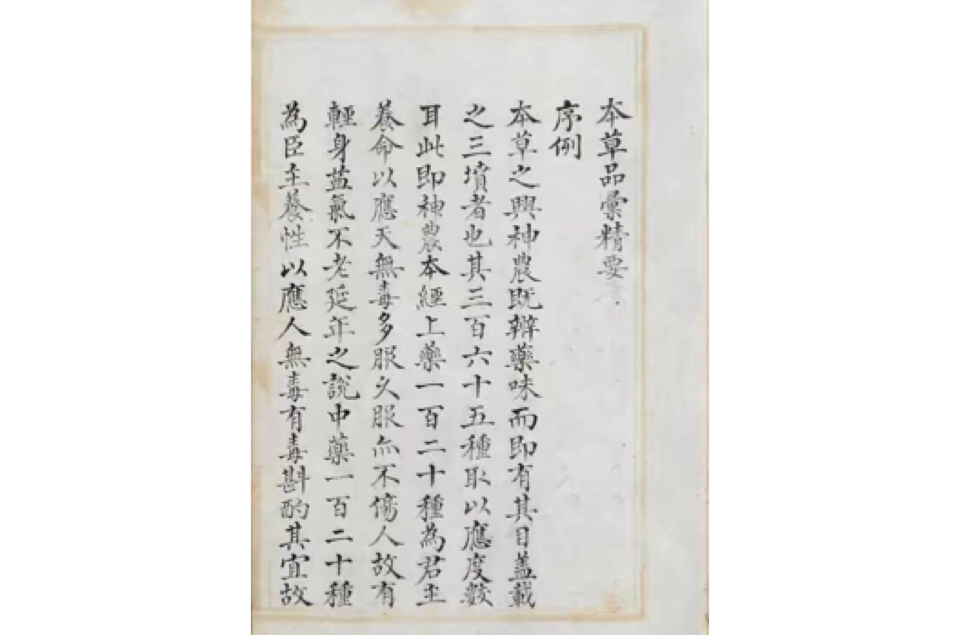 本草品彙精要
序例
本草之興神農既辯藥味而即有其目蓋載
之三墳者也其三百六十五種取以應度數
耳此即神農本經上藥一百二十種為君主
養命以應天無毒多服久服亦不傷人故有
輕身益氣不老延年之說中藥一百二十種
為臣主養性以應人無毒有毒斟酌其宜故